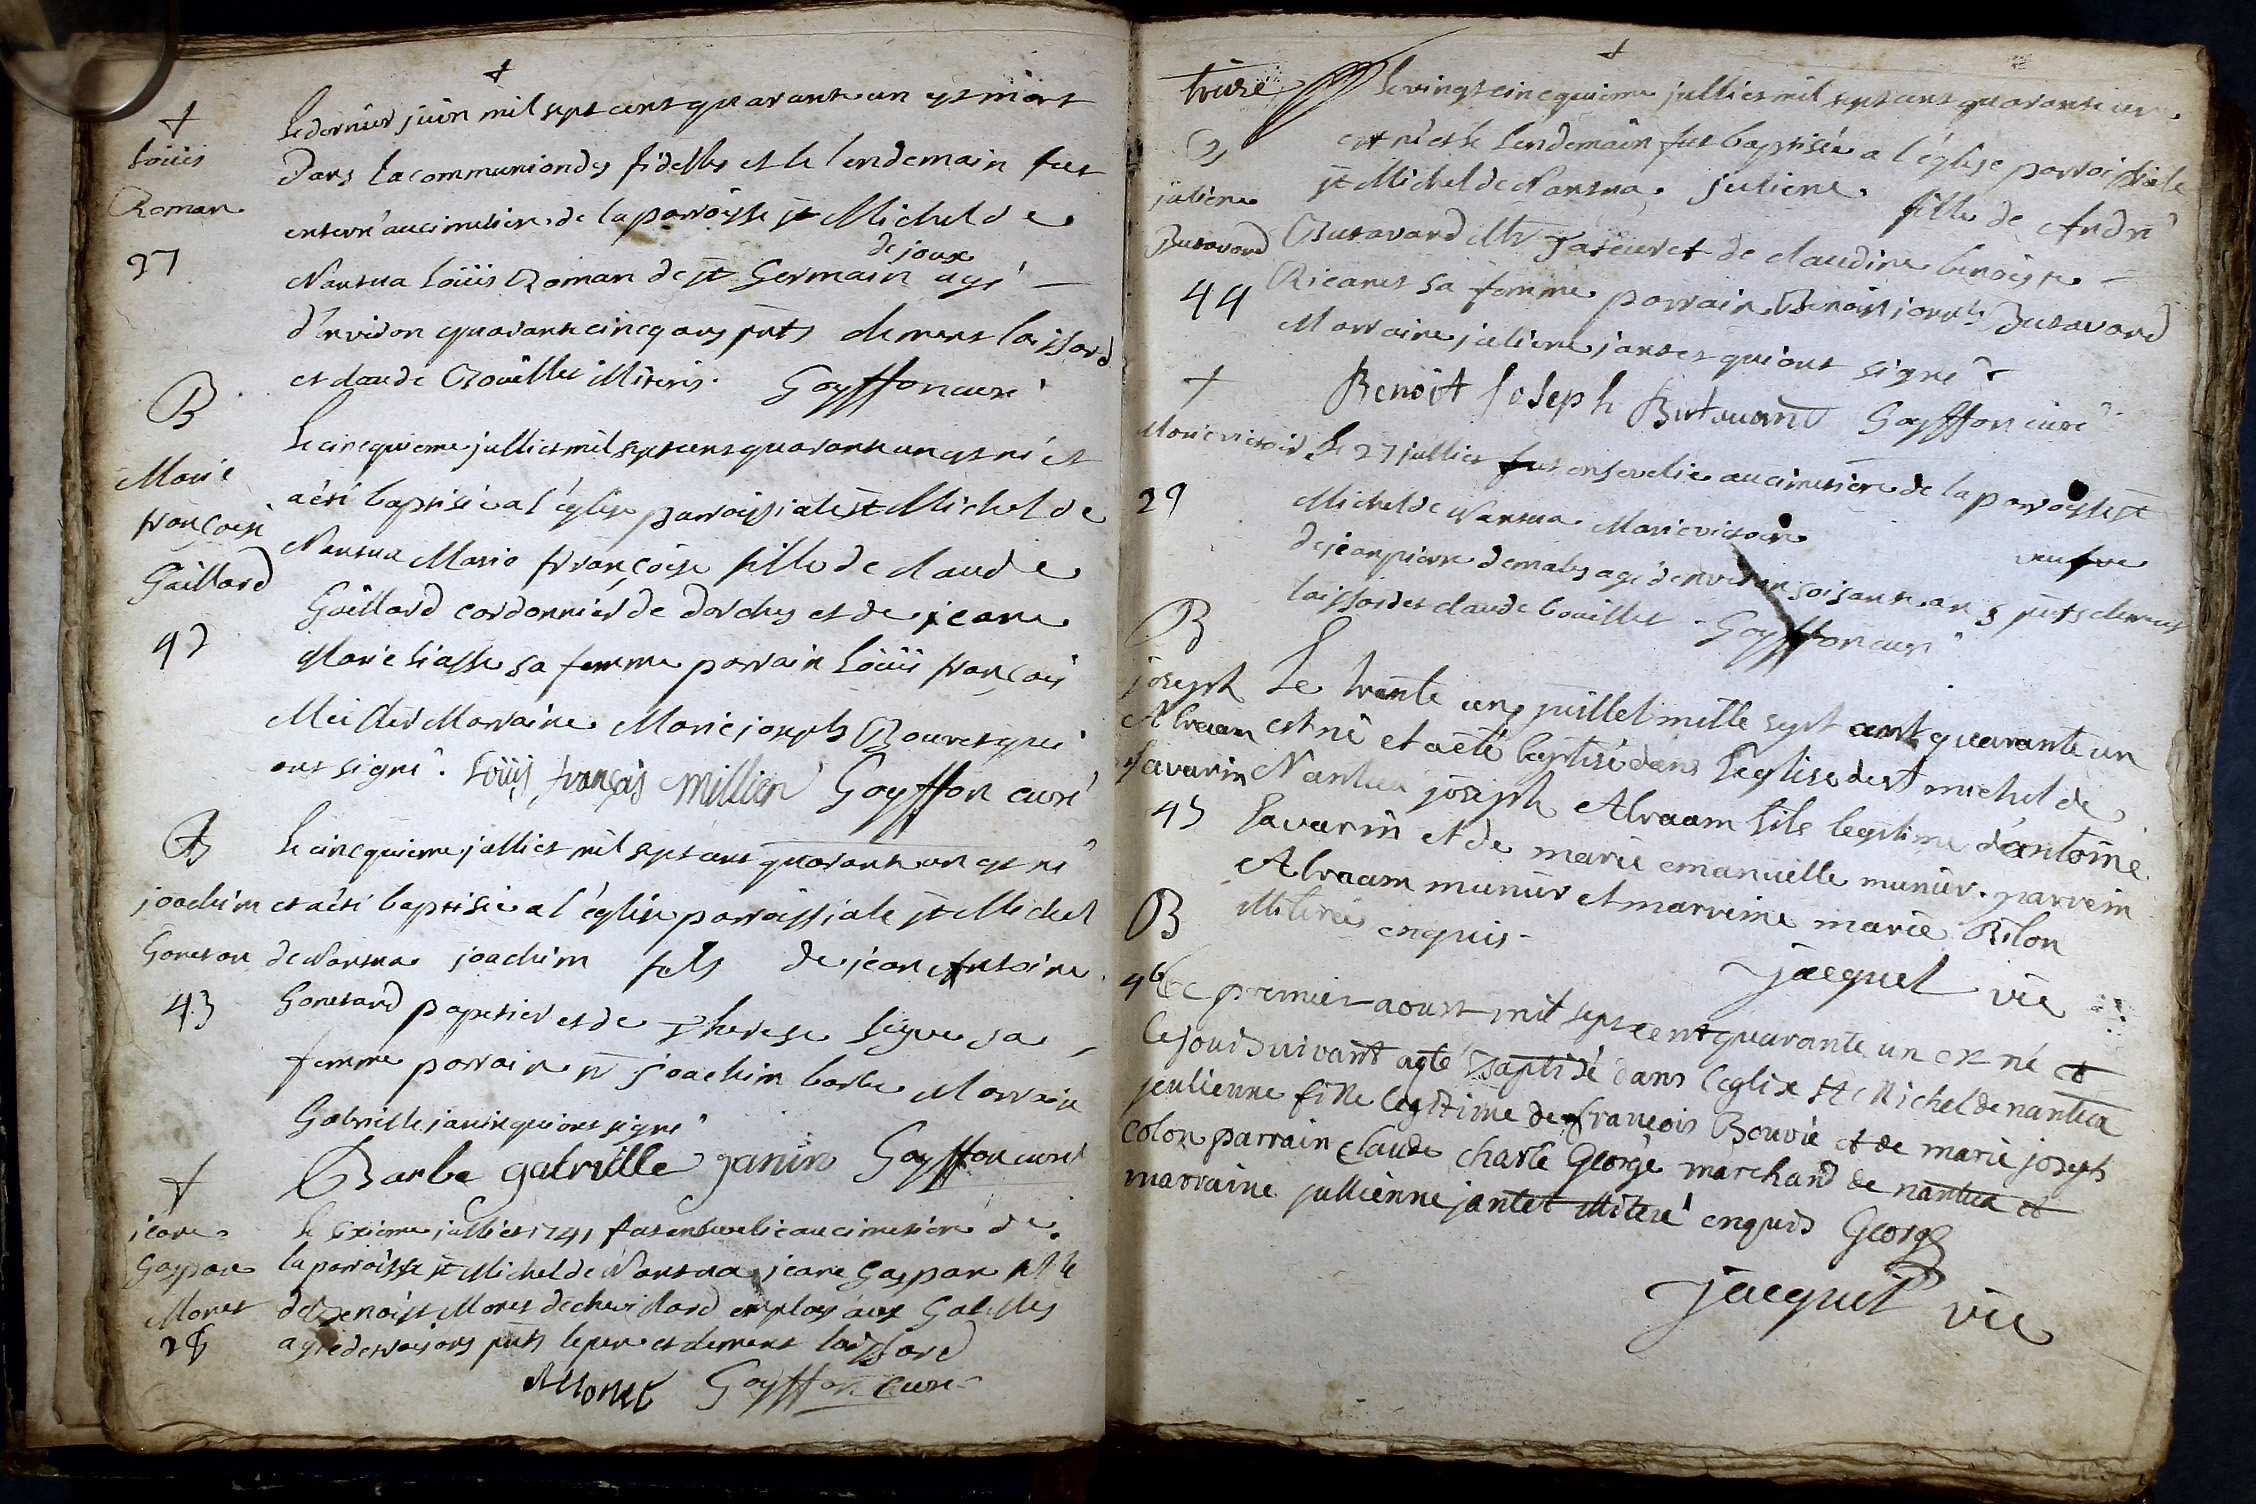 +
Loüis
Roman
27
Le dernier juin mil sept cent quarante un est mort
dans la communion des fidelles et le lendemain fut
enterré au cimetiere de la parroisse st Michel de
de joux
Nantua Loüis Roman de st Germain agé
d'environ quarante cinq ans pnts clement laissard
et claude Boüillet illiterés. Goyffon curé
B
Marie
françoise
Gaillard
42
Le cinquieme julliet mil sept cent quarante un est né et
a été baptisée a l'église parroissiale st Michel de
Nantua Marie françoise fille de claude
Gaillard cordonnier de dorches et de jeane
Marie sa femme parrain Loüis françois
Marraine Marie joseph Bouvet qui
ont signé. Loüis françois Millien Goyffon curé
B
joachim
Gonetan
43
Le cinquieme julliet mil sept cent quarante un est né
et a été baptisée a l'église parroissiale st Michel
de Nantua joachim fils de jean Antoine
Gonetard papetier et de Therese sa
femme parrain joachim barbe Marraine
Gabrielle janin qui ont signé
Barbe gabrielle janin Goyffon curé
+
jeane
Gaspare
Monet
28
Le sixieme julliet 1741 fut ensevelie au cimetiere de
la parroisse st Michel de Nantua jeane Gaspare fille
de Benoist Monet de chevillard employ aux Gabelles
agée de trois ans pnts le pere et clement laissard
Monet Goyffon curé
treize
+
B
juliene
Butavand
44
Le vingt cinquieme julliet mil sept cent quarante un
est né et le lendemain fut baptisée a l'église parroissiale
st Michel de Nantua juliene fille de André
Butavand et de claudine benoiste
Ricanet sa femme parrain Benoist joseph Butavand
Marraine juliene jantet qui ont signé
Benoit Joseph Butavant Goyffon curé
+
Marie victoire
29
Le 27 julliet fut ensevelie au cimetiere de la parroisse st
Michel de Nantua Marie victoire veufve
de jean pierre agé d'environ soisante ans pnts clement
laissard et claude bouillet Goyffon curé
B
joseph
Alvaam
Savarin
45
Le trente un juillet mille sept cent quarante un
est né et a eté baptisé dans l'eglise de st michel de
Nantua joseph Alvaam fils legitime d'antoine
Savarin et de marie emanuelle munier. parrein
Alvaam munier et marreine marie Rilon
illiterés enquis
jacquet vic
B
46
Le premier aoust mil sept cent quarante un est né et
le jour suivant a eté baptisé dans l'eglise St Michel de nantua
jeulienne fille legitime de françois Bouvié et de marie joseph
colon parrain Claude charle George marchand de nantua et
marraine jullienne jantet illiteré enquis George
jacquet vic